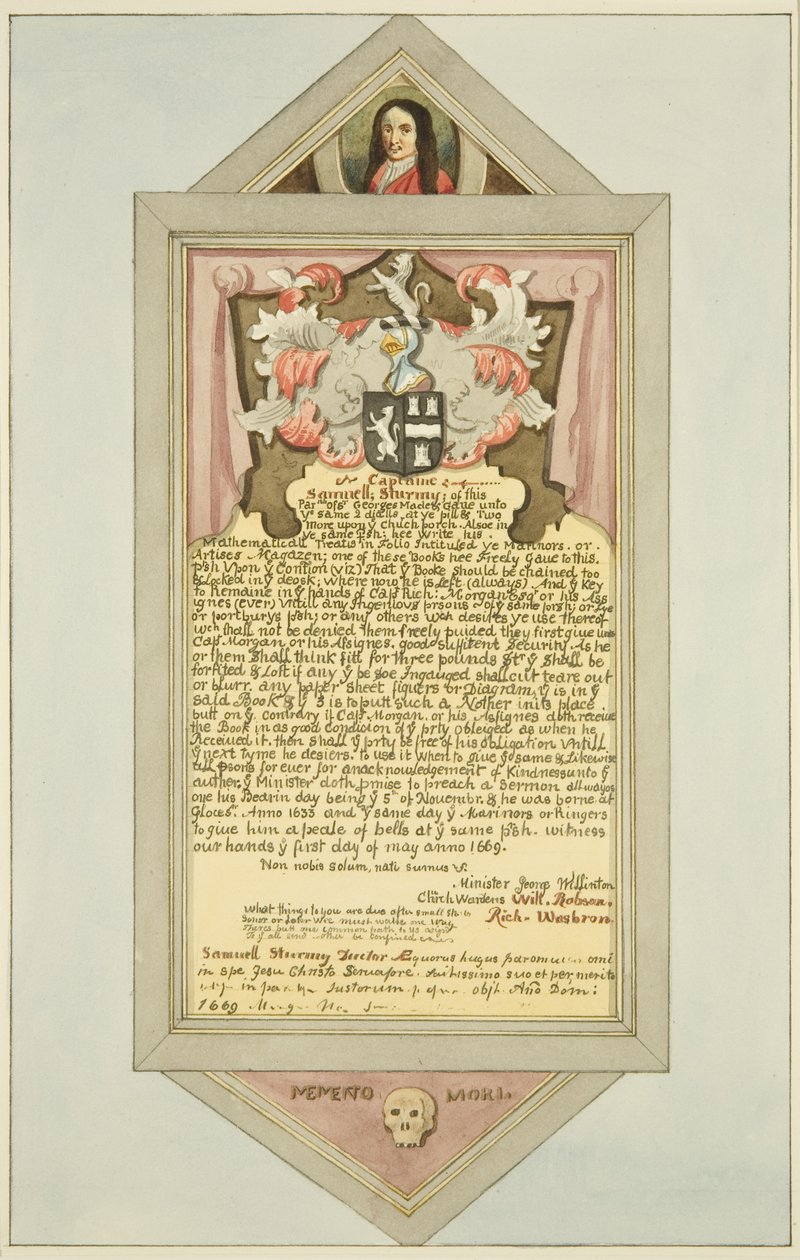 Captaine
Samuell; Sturmy; of this
Par of St Georges Made; gaue unto
ye same 2 dialls at ye pill & Two
more upon ỹ Chuch porch. Alsoe in
ye same Psh; hee Write his
Mathematicall Treatis in Folio Intituled ye Marinors. or.
Artises Magazen; one of these Books hee Freely Gaue to this.
psh Vpon ỹ Contion (viz) That ỹ Booke should be chained too
& Locked in ỹ deosk; where now he is Left (always) And ỹ Key
to Remaine in ỹ hands of Capt Rich: Morgan Esqr or his Ass
ignes (ever) Vntill any Ingenious prsons of ỹ same prsh; or
or portburys psh; or any others wch desires ye use thereof
Wch shall not be denied them freely puided they first giue unto
Capt Morgan or his Assignes. good & suffitent Security. As he
or them Shall think fitt for three pounds Str ỹ Shall be
forfited & Lost if any ỹ be soe Ingauged shall cut teare out
or blurr. any paper sheet figuers or Diagram, ỹ is in ỹ
said Book & ỹ 3 is to putt such a Nother in its place.
butt on ỹ. contrary if Capt Morgan. or his Assignes doth receive
the Book in as good condicion of ỹ prty obleiged as when he
Received it. then Shall ỹ prty be free of his obligation Vntill
ỹ next tyme he desiers. to use it When to giue ỹ same & Likewise
all psons for euer for an acknowledgement of Kindness unto ỹ
author, ỹ Minister doth pmise to preach a Sermon allwayes
one his Bearin day being ỹ 5th of Novembr. & he was borne at
Glocesr. Anno 1633 and ỹ same day ỹ Marinors or Ringers
to giue him a peale of bells at ỹ same psh. witness
our hands ỹ first day of may anno 1669.
Non nobis solum, nati sumus
Minister George Willinton
Chrch Wardens Will. Robson.
Rich. Wasbron.
What things to you are due after small
Sonor or later Wee must walke one Way
Theres butt one common path to us
all end be confined
Samuell Sturmy Auctor Æquorus hugus paromi omi
in spe Jesu Christo Seruafore. Altissimo suo et per merito
in par Iustorum objt. Ano Dom:
1669
MEMENTO MORI.